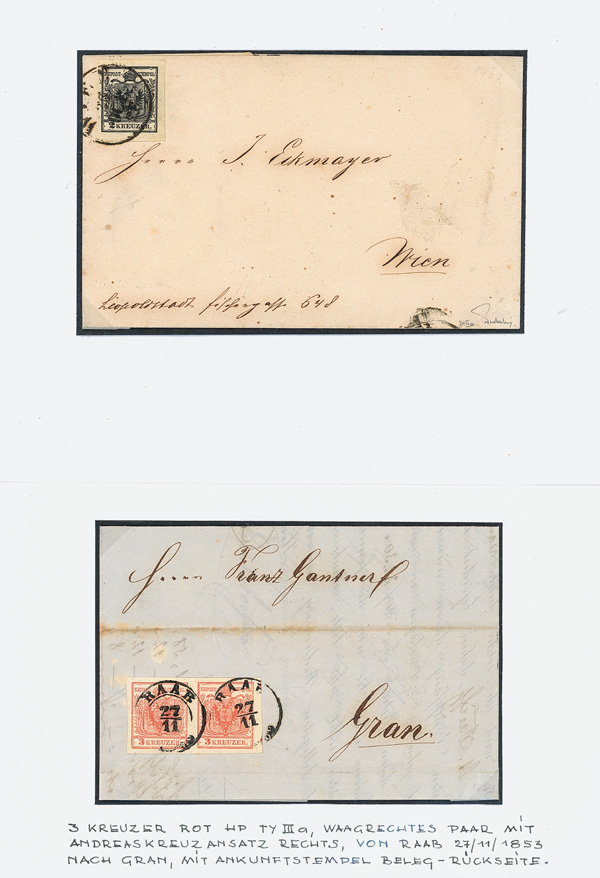 WIEN
K.K.POST-STEMPEL
2 KREUZER.
Herrn J. Eckmayer
Wien
Leopoldstadt Fischergasse 648
Herrn Franz Gantner
RAAB
27
11
RAAB
27
11
3 KREUZER.
3 KREUZER.
Gran.
3 KREUZER ROT HP TY IIIa, WAAGRECHTES PAAR MIT
ANDREASKREUZANSATZ RECHTS, VON RAAB 27/11/1853
NACH GRAN, MIT ANKUNFTSTEMPEL BELEG-RÜCKSEITE.